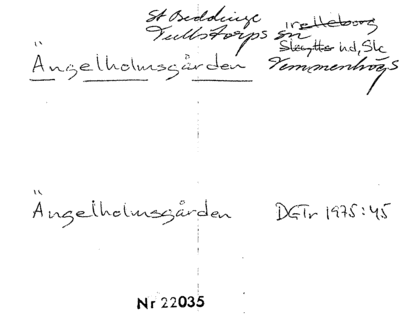 St Beddinge
Tullstorps sn
Trelleborg
Skytts hd, Sk
Ängelholmsgården Vemmenhögs
Ängelholmsgården DGTr 1975:45
Nr 22035